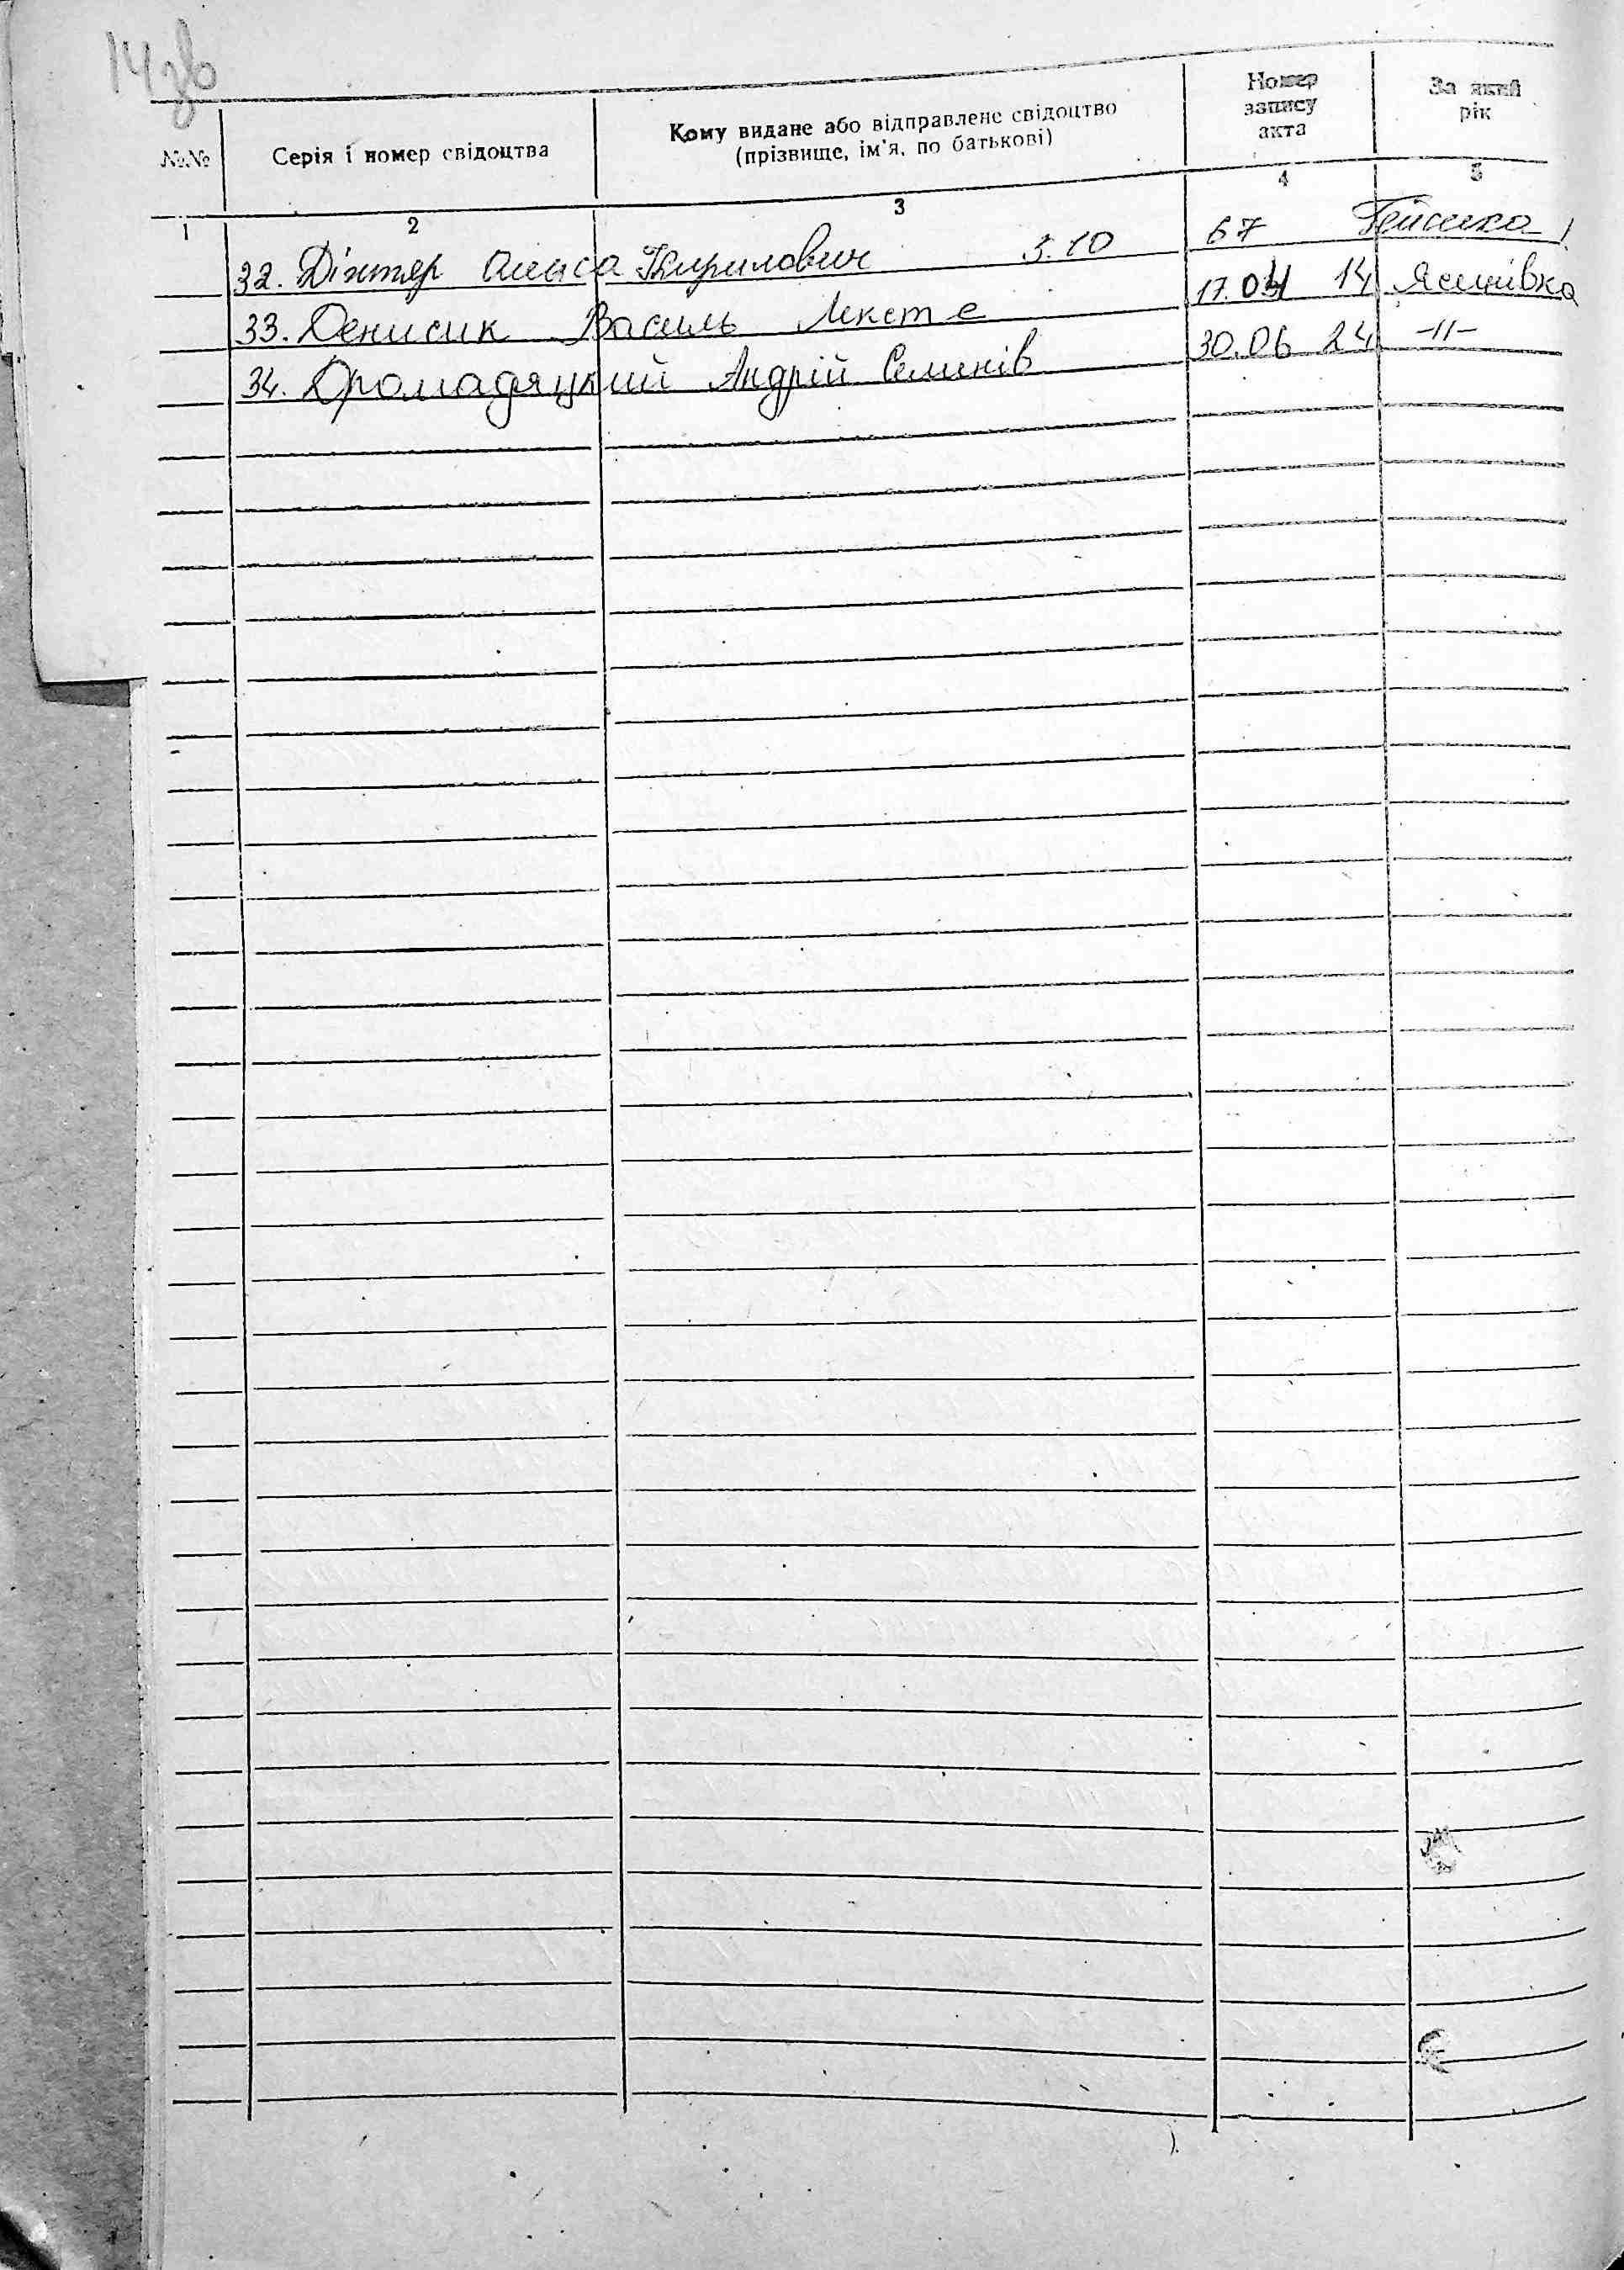 14зв
№№ Серія і номер свідоцтва Кому видане або відправлене свідоцтво (прізвище, ім'я, по батькові) Номер запису акта За який рік
1 2 3 4 5
32. Діхтяр Олекса Кирилович 3.10 67
33. Денисик Василь 17.04 14 Ясенівка
34. Дромадяцкий Андрій Семенів 30.06 24 -11-